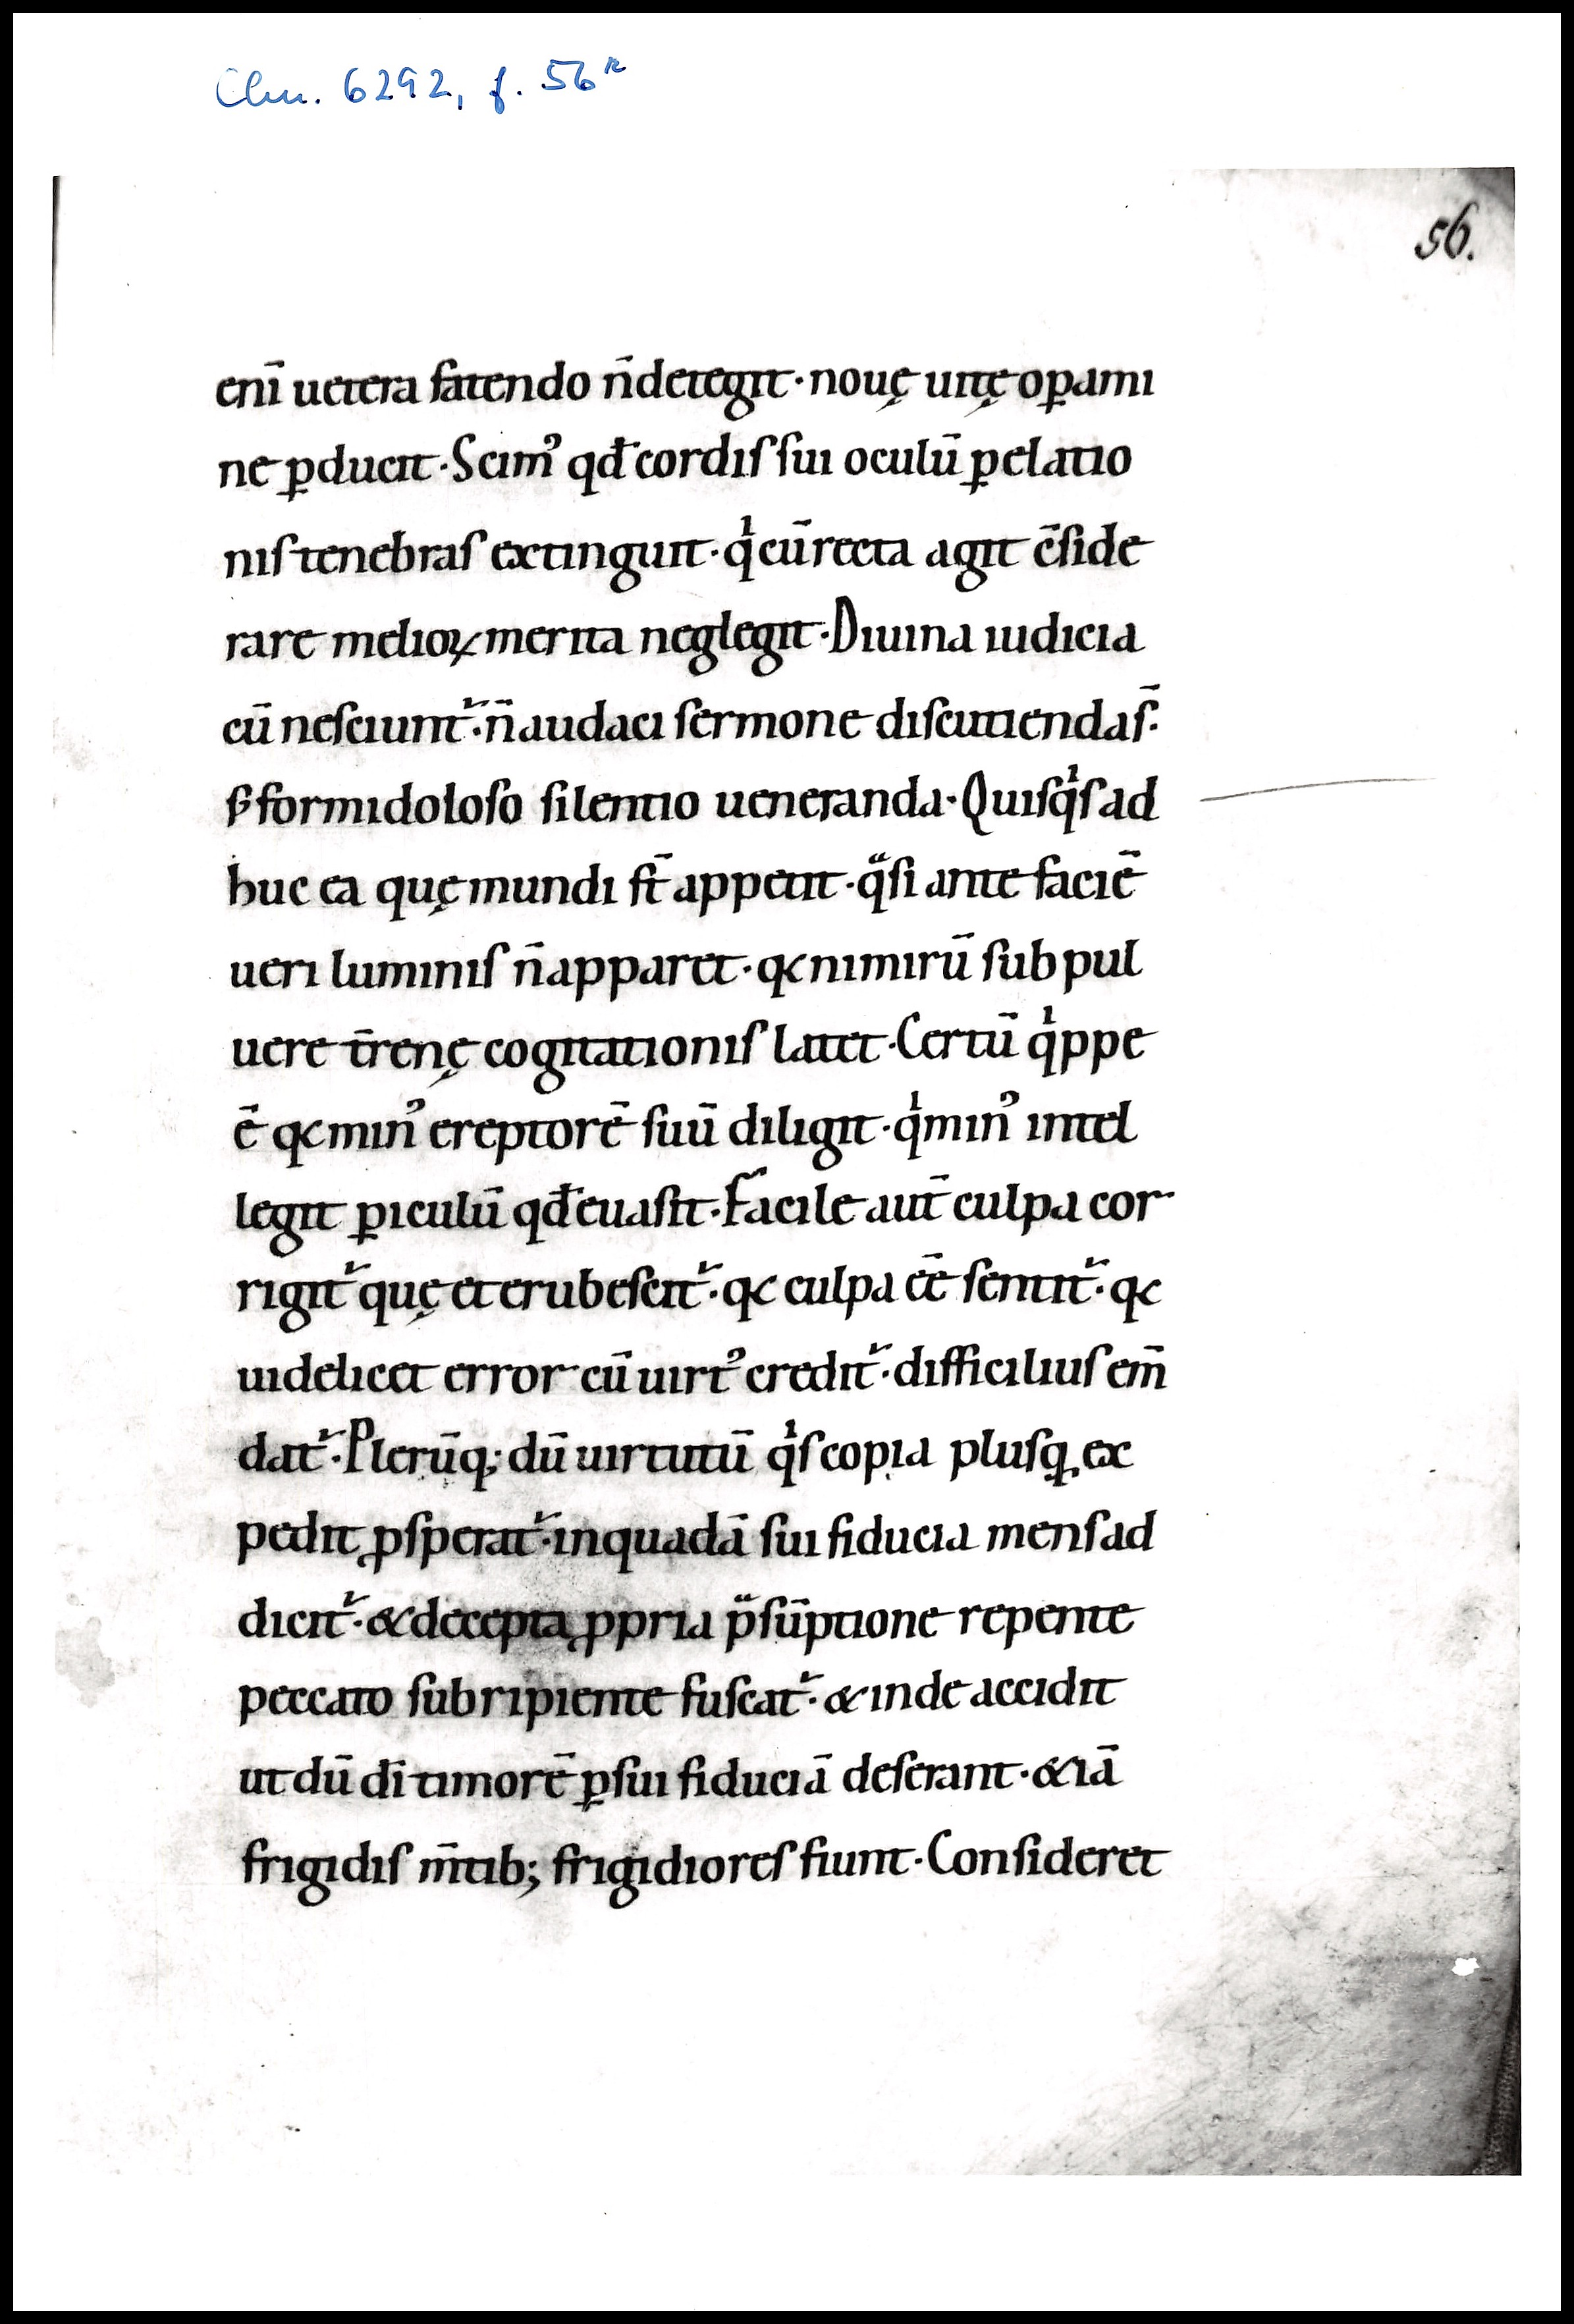 Clm. 6292, f. 56r
56.
enī uetera fatendo n̄ detegit · nouę uitę oꝑa mi
ne ꝓducit · Scimꝰ qđ cordiſ ſui oculū ꝑ elatio
niſ tenebraſ extinguit · qͥ cū recta agit c̄ſide
rare melioꝝ merita neglegit · Diuina iudicia
cū neſciunt᷑ · n̄ audaci ſermone diſcutienda s̄ ·
ſꝫ formidoloſo ſilentio ueneranda · Quiſqͥſ ad
huc ea quę mundi ſt̄ appetit · qͣſi ante faciē
ueri luminiſ n̄ apparet · qꝛ nimirū ſub pul
uere t̄renę cogitationiſ latet · Certū qͥppe
ē qꝛ minꝰ ereptorē ſuū diligit · qͥ minꝰ intel
legit ꝑiculū qđ euaſit · Facile aut̄ culpa cor
rigit᷑ quę et erubeſcit᷑ · qꝛ culpa ēē ſentit᷑ · qꝛ
uidelicet error cū uirtꝰ credit᷑ · difficiliuſ em̄
dat᷑ · Plerūq; dū uirtutū qͥſ copia pluſꝗ ex
pedit ꝓſperat᷑ · in quadā ſui fiducia menſ ad
dicit᷑ · & decepta ꝓpria pͣſūptione repente
peccato ſubripiente fuſcat᷑ · & inde accidit
ut dū dī timorē ꝑ ſui fiduciā deſerant · & iā
frigidiſ m̄tib; frigidioreſ fiunt · Conſideret